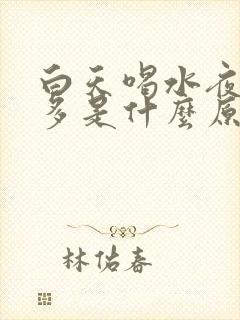 白天喝水夜
多是什麼原
林佑春